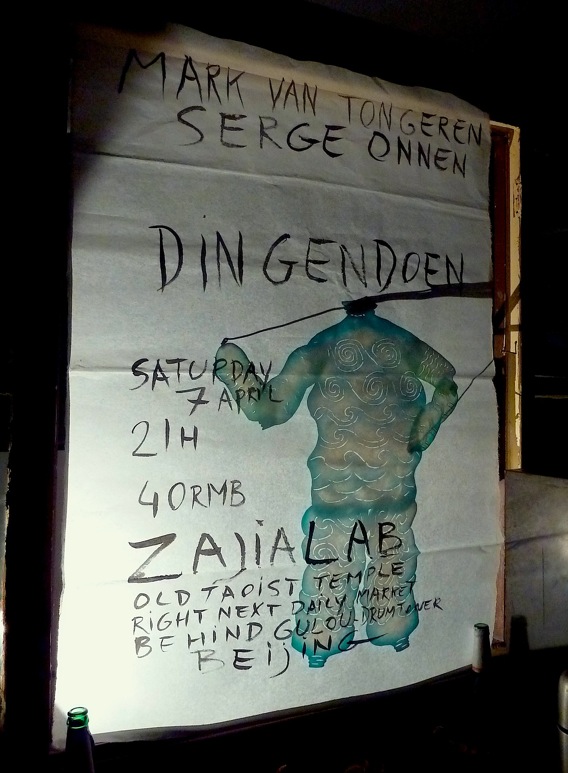 MARK VAN TONGEREN
SERGE ONNEN
DINGENDOEN
SATURDAY
7 APRIL
21H
40RMB
ZAJIALAB
OLD TAOIST TEMPLE
RIGHT NEXT DAILY MARKET
BEHIND GULOU-DRUMTOWER
BEIJING